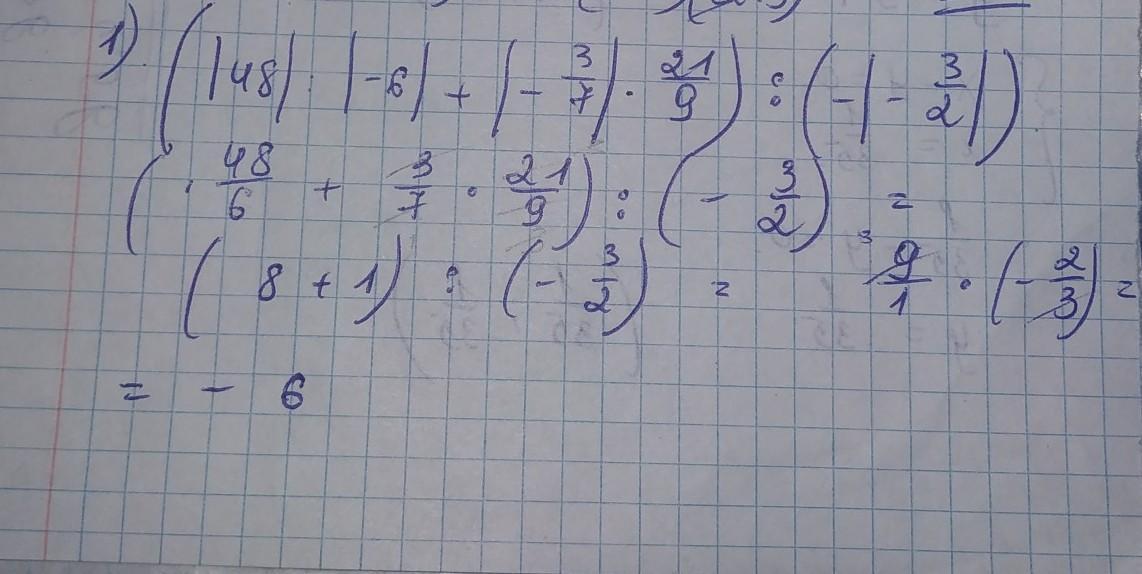 1) (|48| : |-6| + |- 3/7| · 21/9) : (-|- 3/2|)
( 48/6 + 3/7 · 21/9) : (- 3/2) =
( 8 + 1) : (- 3/2) = 9/1 · (- 2/3) =
= - 6